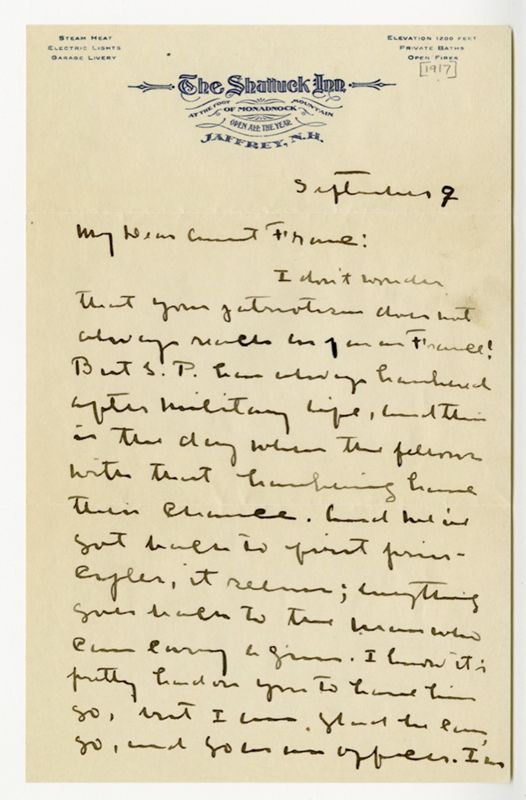 STEAM HEAT
ELECTRIC LIGHTS
GARAGE LIVERY
ELEVATION 1200 FEET
PRIVATE BATHS
OPEN FIRES
[1917]
The Shattuck Inn
AT THE FOOT OF MONADNOCK MOUNTAIN
OPEN ALL THE YEAR
JAFFREY, N.H.
September 9
My Dear Aunt Franc:
I don't wonder
that your patriotism does not
always reach as far as France!
But G. P. has always hankered
after military life, and this
is the day when the fellows
with that hankering have
their chance. And we've
got back to first prin-
ciples, it seems; everything
goes back to the man who
can carry a gun. I know it's
pretty hard on you to have him
go, but I am glad he can
go, and go as an officer. I'm